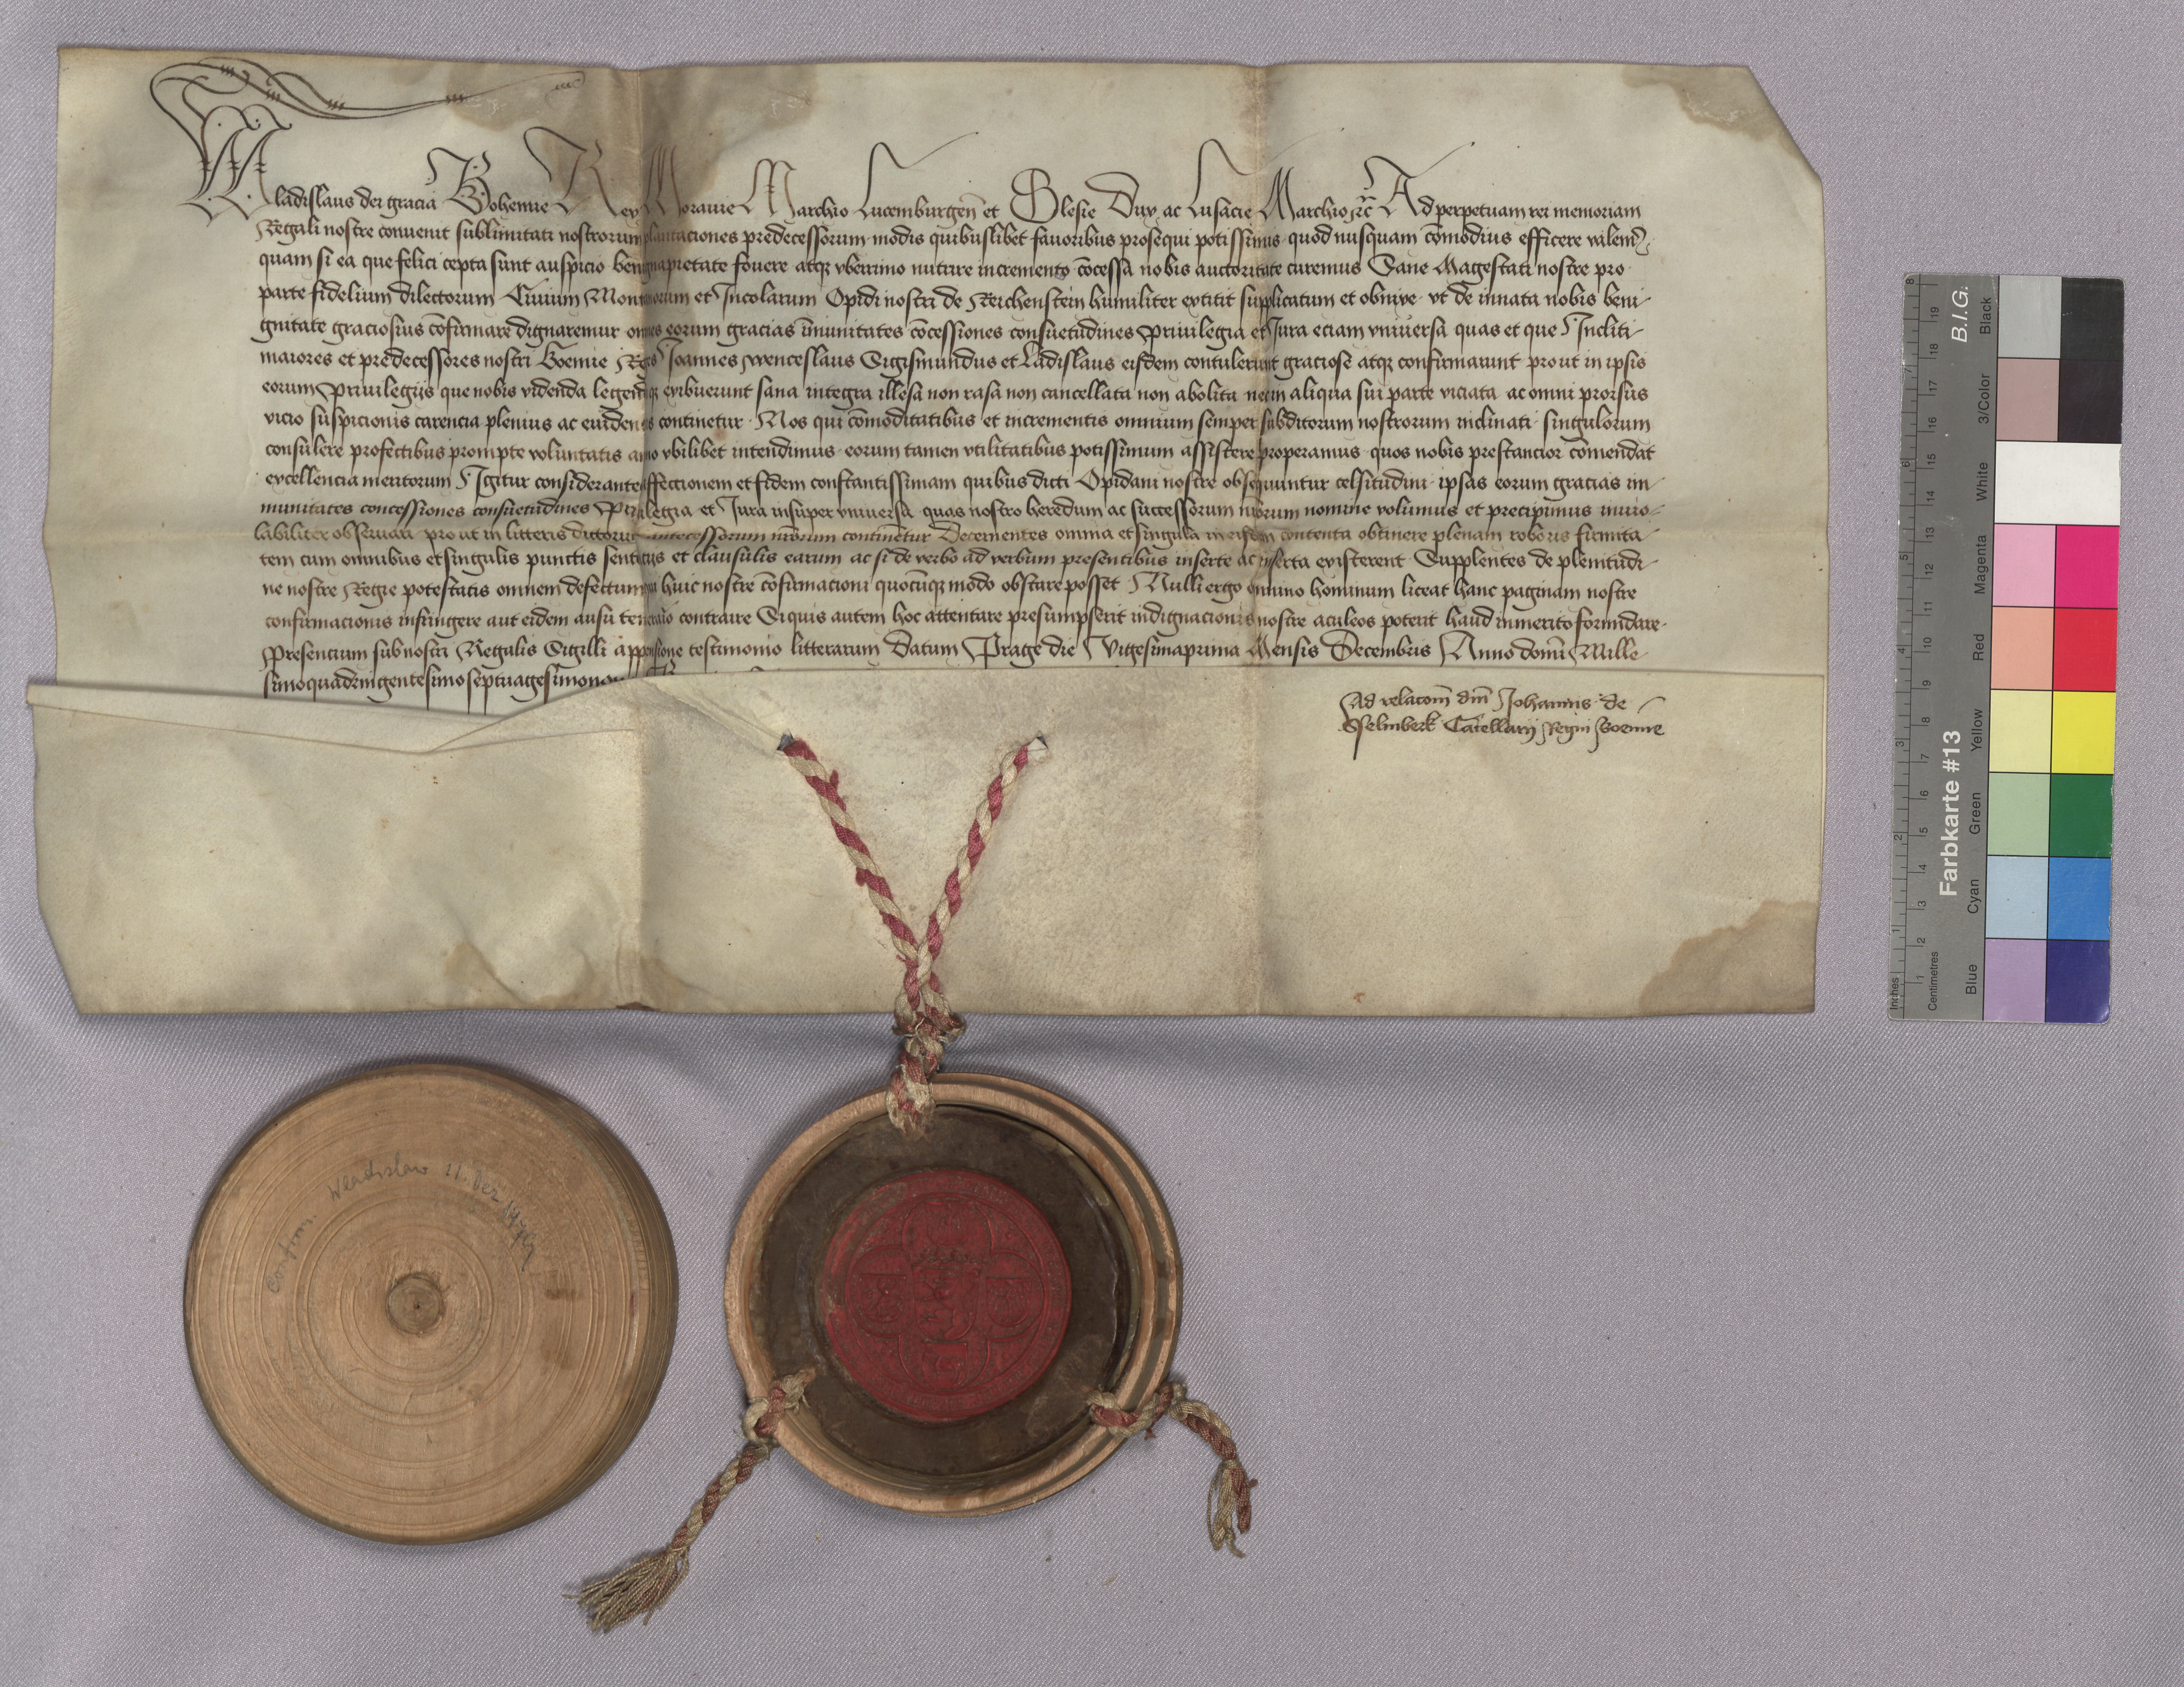 Wladislaus dei gracia Bohemie Rex Moravie Marchio Lucemburgen̄ et Slesie Dux ac Lusacie Marchio ꝛc̄ Ad perpetuam rei memoriam
Regali nostre convenit sublimitati nostrorum plantaciones predecessorum modis quibuslibet favoribus prosequi potissimus quod nusquam com̄odius efficere valem⁹
quam si ea que felici cepta sunt auspicio benigna pietate fovere atqꝫ vberrimo nutrire incremento con̄cessa nobis auctoritate curemus Sane Magestati nostre pro
parte fidelium dilectorum Civium Montanorum et Incolarum Opidi nostri de Reichenstein humiliter extitit supplicatum et obnixe vt de innata nobis beni-
gnitate graciosius cōfirmare dignaremur omnes eorum gracias īmunitates cōcessiones consuetudines Privilegia et Jura eciam vniversa quas et que Incliti
maiores et predecessores nostri Boemie Reges Joannes Wenceslaus Sigismundus et Ladislaus eisdem contulerunt graciose atqꝫ confirmarunt prout in ipsis
eorum Privilegijs que nobis videnda legendaqꝫ exibuerunt sana integra illesa non rasa non cancellata non abolita nec in aliqua sui parte viciata ac omni prorsus
vicio suspicionis carencia plenius ac evidencius continetur Nos qui cōmoditatibus et incrementis omnium semper subditorum nostrorum inclinati singulorum
consulere profectibus prompte voluntatis animo vbilibet intendimus eorum tamen vtilitatibus potissimum assistere properamus quos nobis prestancior cōmendat
excellencia meritorum Igitur considerantes affectionem et fidem constantissimam quibus dicti Opidani nostre obsequuntur celsitudini ipsas eorum gracias im-
munitates concessiones consuetudines Privilegia et Jura insuper vniversa quas nostro heredum ac successorum nr̄orum nomine volumus et precipimus invio-
labiliter observari prout in litteris dictorum antecessorum nr̄orum continetur Decernentes omnia et singula in eisdem contenta obtinere plenam roboris firmita-
tem cum omnibus et singulis punctis sentenciis et clausulis earum ac si de verbo ad verbum presentibus inserte ac inserta existerent Supplentes de plenitudi-
ne nostre Regie potestatis omnem defectum qui huic nostre cōfirmacioni quocūqꝫ modo obstare posset Nulli ergo omnino hominum liceat hanc paginam nostre
confirmacionis infringere aut eidem ausu temerario contraire Siquis autem hoc attentare presumpserit indignacionis nostre aculeos poterit haud inmerito formidare
Presencium sub nostri Regalis Sigilli appensione testimonio litterarum Datum Prage die Vigesimaprima Mensis Decembris Anno domī Mille-
simoquadringentesimoseptuagesimonono
Ad relacoēm dn̄i Johannis de
Sselmberk Cācellarij Regni Boemie
Confirm. Wladislaw 21. Dez 1479
Inches
Centimetres
Farbkarte #13
B.I.G.
Blue Cyan Green Yellow Red Magenta White 3/Color Black
1 2 3 4 5 6 7 8
1 2 3 4 5 6 7 8 9 10 11 12 13 14 15 16 17 18 19